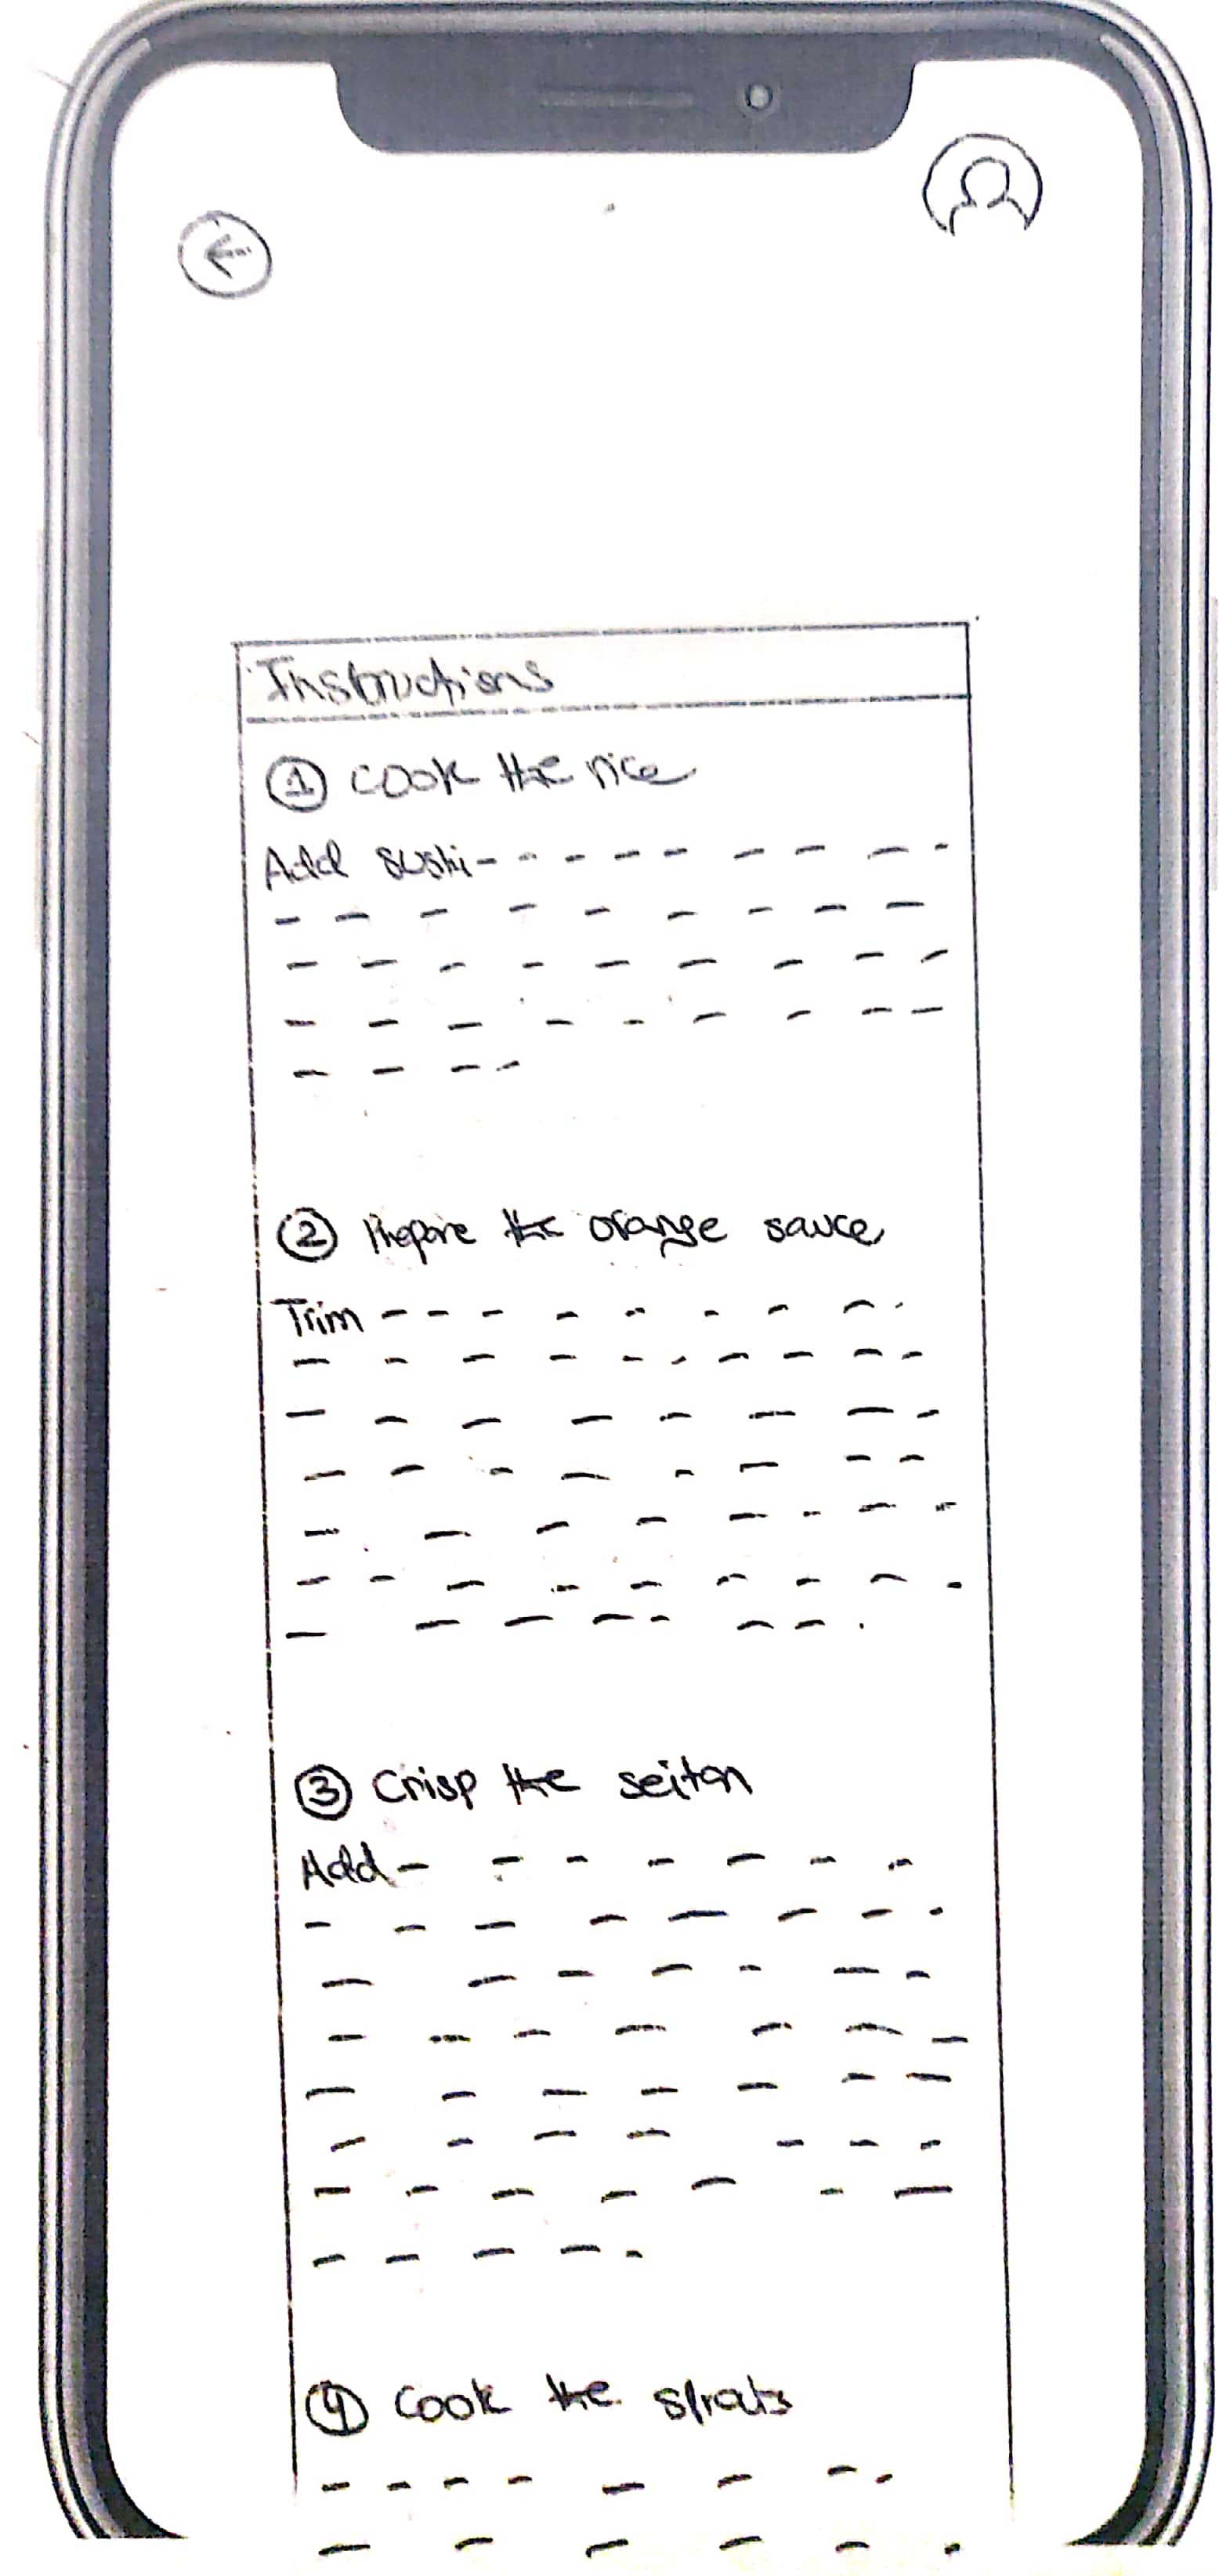 Instructions
① Cook the rice
Add sushi
② Prepare the orange sauce
Trim
③ Crisp the seitan
Add
④ Cook the